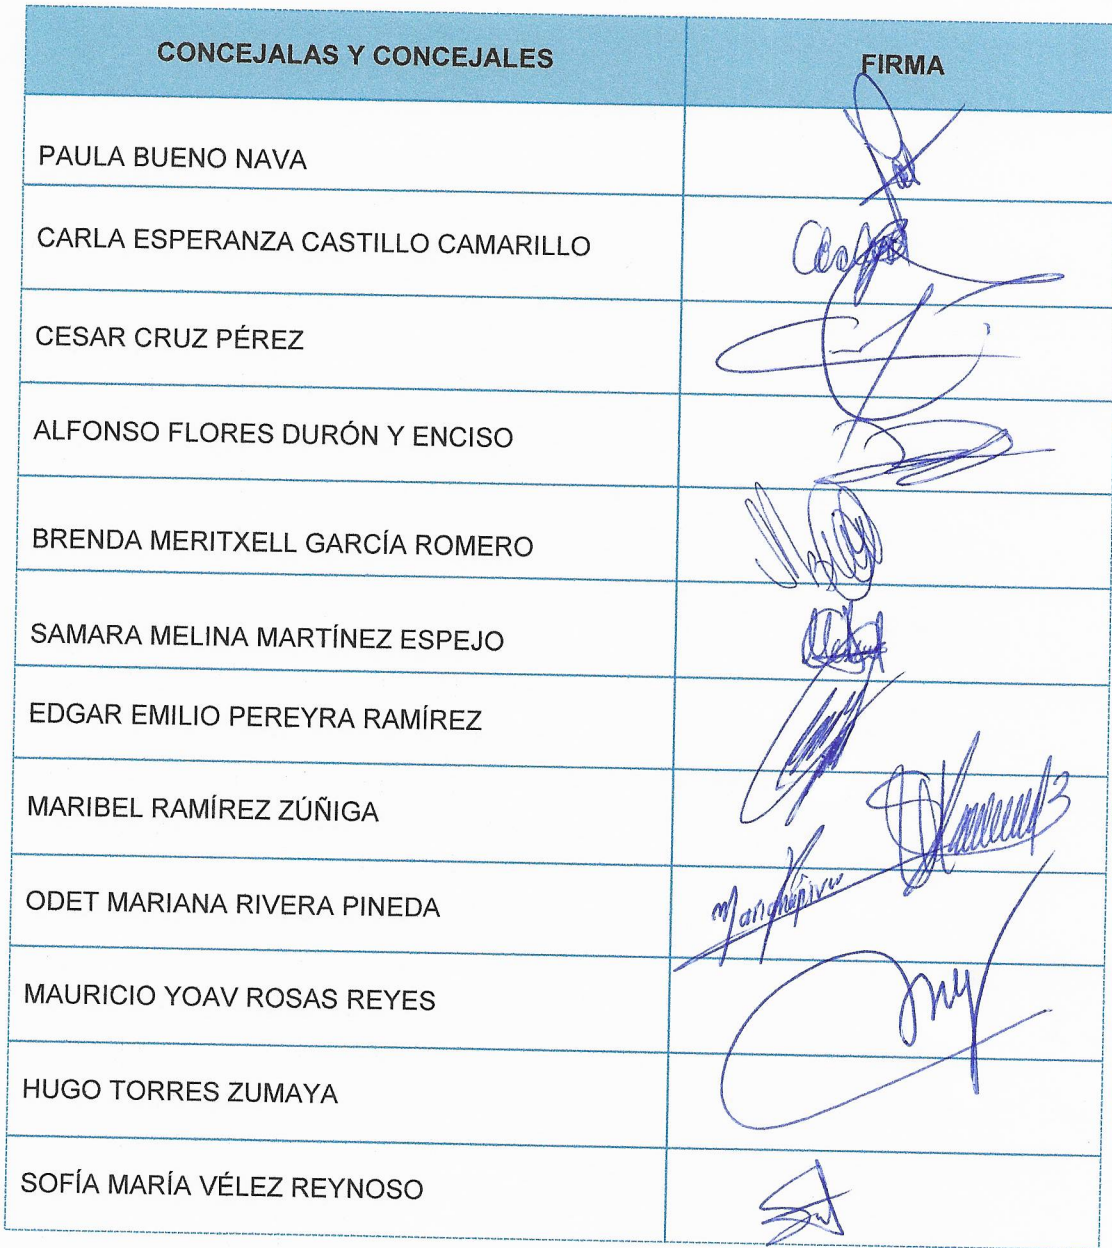 CONCEJALAS Y CONCEJALES FIRMA
PAULA BUENO NAVA
CARLA ESPERANZA CASTILLO CAMARILLO
CESAR CRUZ PÉREZ
ALFONSO FLORES DURÓN Y ENCISO
BRENDA MERITXELL GARCÍA ROMERO
SAMARA MELINA MARTÍNEZ ESPEJO
EDGAR EMILIO PEREYRA RAMÍREZ
MARIBEL RAMÍREZ ZÚÑIGA
ODET MARIANA RIVERA PINEDA
MAURICIO YOAV ROSAS REYES
HUGO TORRES ZUMAYA
SOFÍA MARÍA VÉLEZ REYNOSO